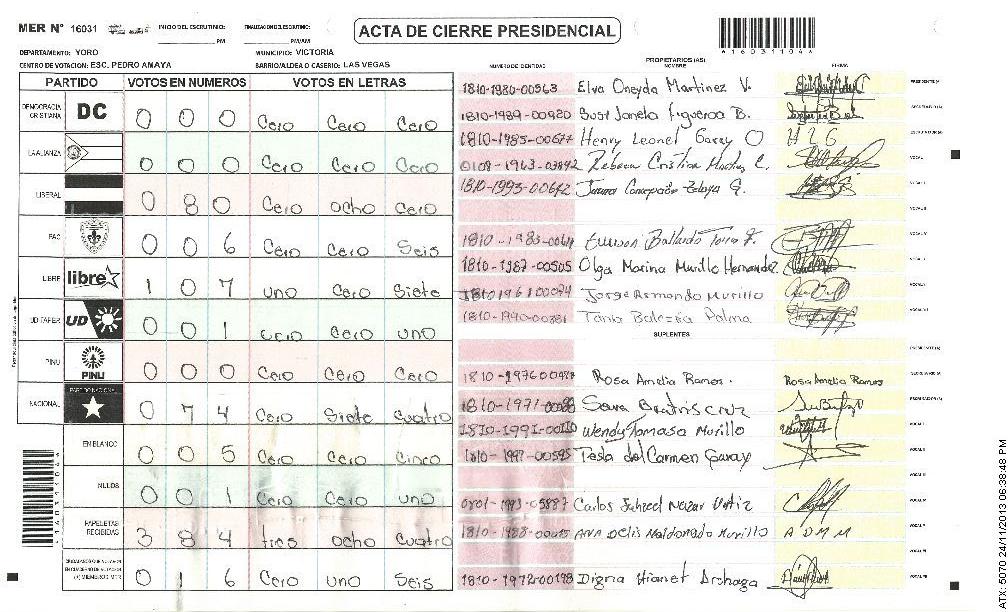 MER N° 16031 INICIO DEL ESCRUTINIO: PM FINALIZACION DEL ESCRUTINIO: PM/AM
ACTA DE CIERRE PRESIDENCIAL
*16031104*
DEPARTAMENTO: YORO MUNICIPIO: VICTORIA
CENTRO DE VOTACION: ESC. PEDRO AMAYA BARRIO/ALDEA O CASERIO: LAS VEGAS
PROPIETARIOS (AS)
NUMERO DE IDENTIDAD NOMBRE FIRMA
PARTIDO VOTOS EN NUMEROS VOTOS EN LETRAS
DEMOCRACIA CRISTIANA DC 0 0 0 Cero Cero Cero
LA ALIANZA 0 0 0 Cero Cero Cero
LIBERAL 0 8 0 Cero ocho Cero
PAC 0 0 6 Cero Cero Seis
LIBRE libre 1 0 7 uno Cero Siete
UD FAPER UD 0 0 1 Cero uno
PINU PINU 0 0 0 Cero Cero Cero
NACIONAL PARTIDO NACIONAL 0 7 4 Cero Siete cuatro
EN BLANCO 0 0 5 Cero Cero Cinco
NULOS 0 0 1 Cero Cero uno
PAPELETAS RECIBIDAS 3 8 4 tres ocho Cuatro
CIUDADANOS QUE VOTARON EN CUADERNO DE VOTACION (+) MIEMBROS MER 0 1 6 Cero uno Seis
1810-1980-00563 Elva Oneyda Martinez V. PRESIDENTE (A)
1810-1989-00920 Figueroa B. SECRETARIO (A)
1810-1985-00677 Henry Leonel Garay O H L G ESCRUTADOR (A)
Rebeca Cristina C. VOCAL I
1810-1993-00642 Concepción Zelaya G.
1810-1983- Ballardo
1810-1987-00505 Olga Marina Murillo Hernandez
Jorge Armando Murillo
1810-1990-00381 Tania Palma
SUPLENTES
PRESIDENTE (A)
Rosa Amelia Ramos. Rosa Amelia Ramos SECRETARIO (A)
1810-1971- Sara Beatris cruz ESCRUTADOR (A)
1810-1991-00110 Wendy Tomasa Murillo
1810-1997-00595 Tesla del Carmen Garay
0801-1993-05887 Carlos
1810-1988- Ana Delis Maldonado Murillo A D M M
1810-1972-00198 Digna
ATX: 5070 24/11/2013 06:38:48 PM